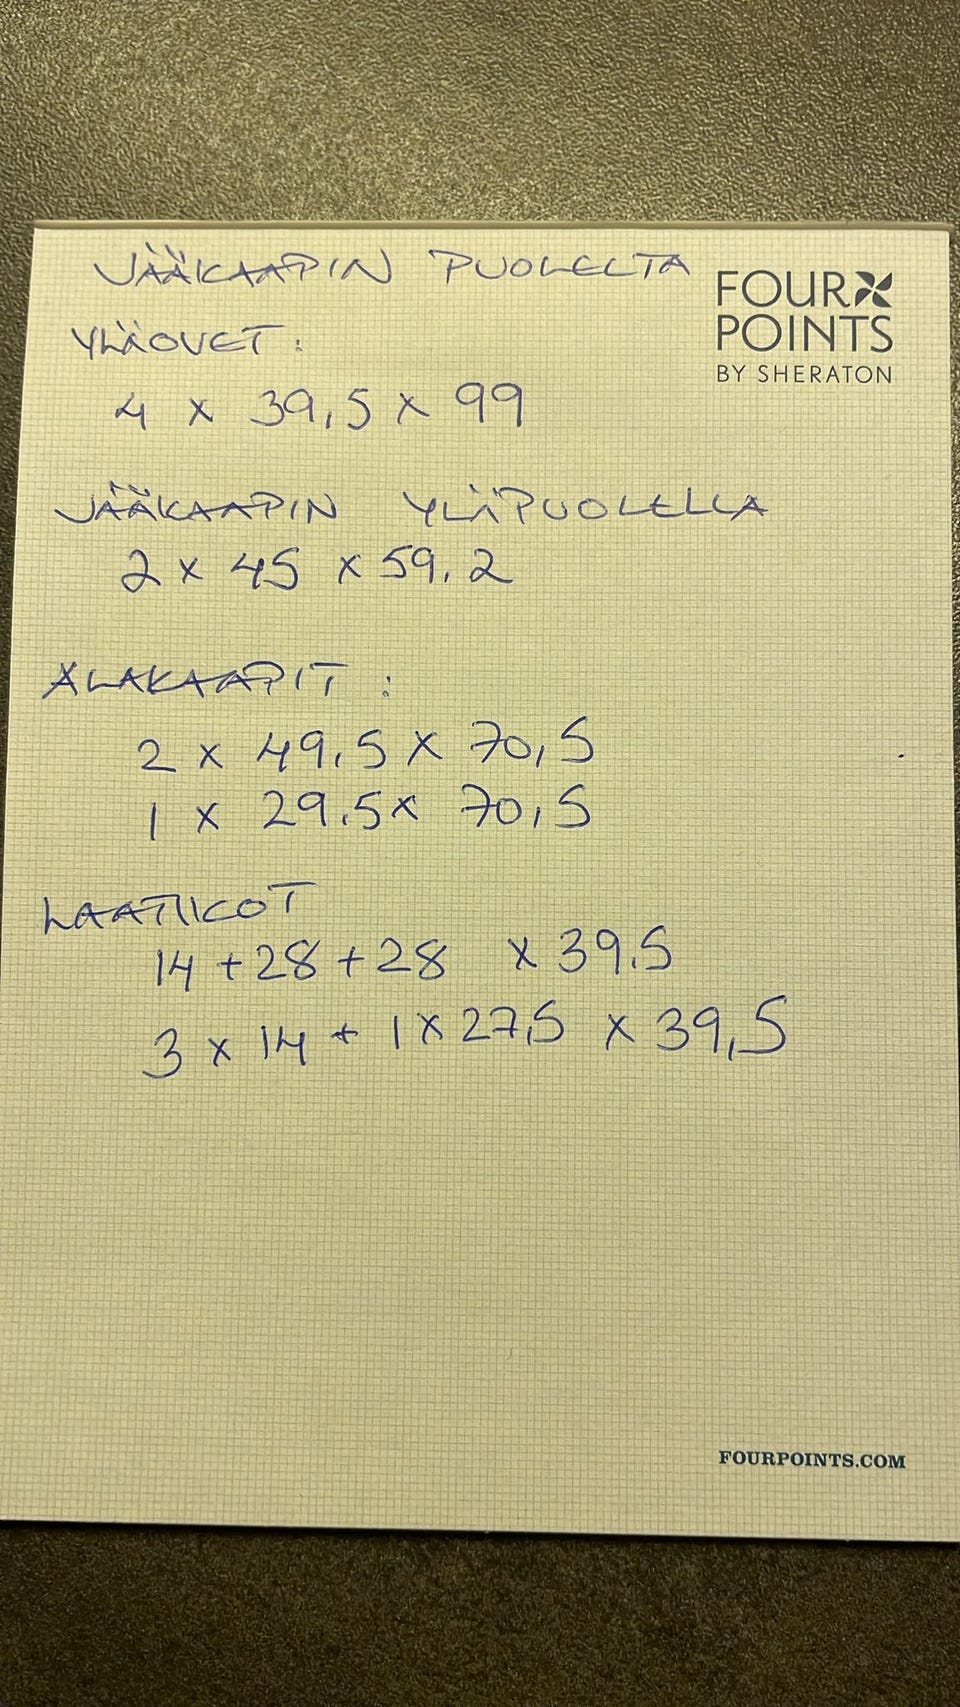 JÄÄKAAPIN PUOLELTA
FOUR POINTS
BY SHERATON
YLÄOVET:
4 x 39,5 x 99
JÄÄKAAPIN YLÄPUOLELLA
2 x 45 x 59.2
ALAKAAPIT :
2 x 49.5 x 70,5
1 x 29.5 x 70,5
LAATIKOT
14 + 28 + 28 x 39.5
3 x 14 + 1 x 27,5 x 39,5
FOURPOINTS.COM